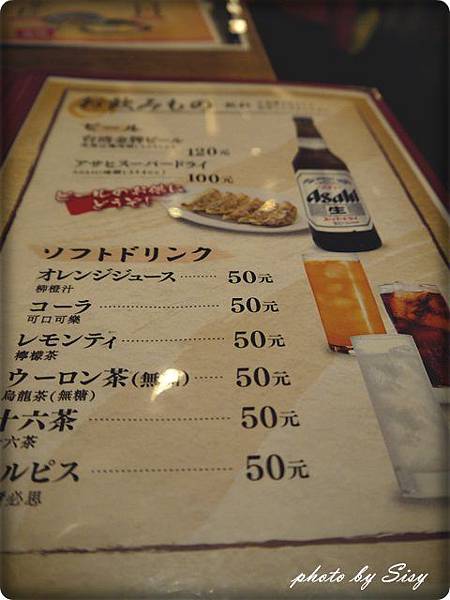 お飲みもの 飲料
ビール
台湾金牌ビール
120元
アサヒスーパードライ
100元
Asahi
生
ソフトドリンク
オレンジジュース 50元
柳橙汁
コーラ 50元
可口可樂
レモンティ 50元
檸檬茶
ウーロン茶(無糖) 50元
烏龍茶(無糖)
十六茶 50元
六茶
ルピス 50元
必思
photo by Sisy